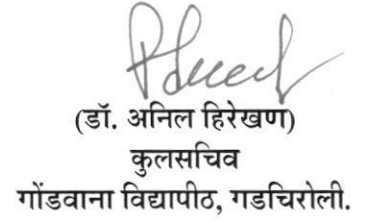 (डॉ. अनिल हिरेखण)
कुलसचिव
गोंडवाना विद्यापीठ, गडचिरोली.